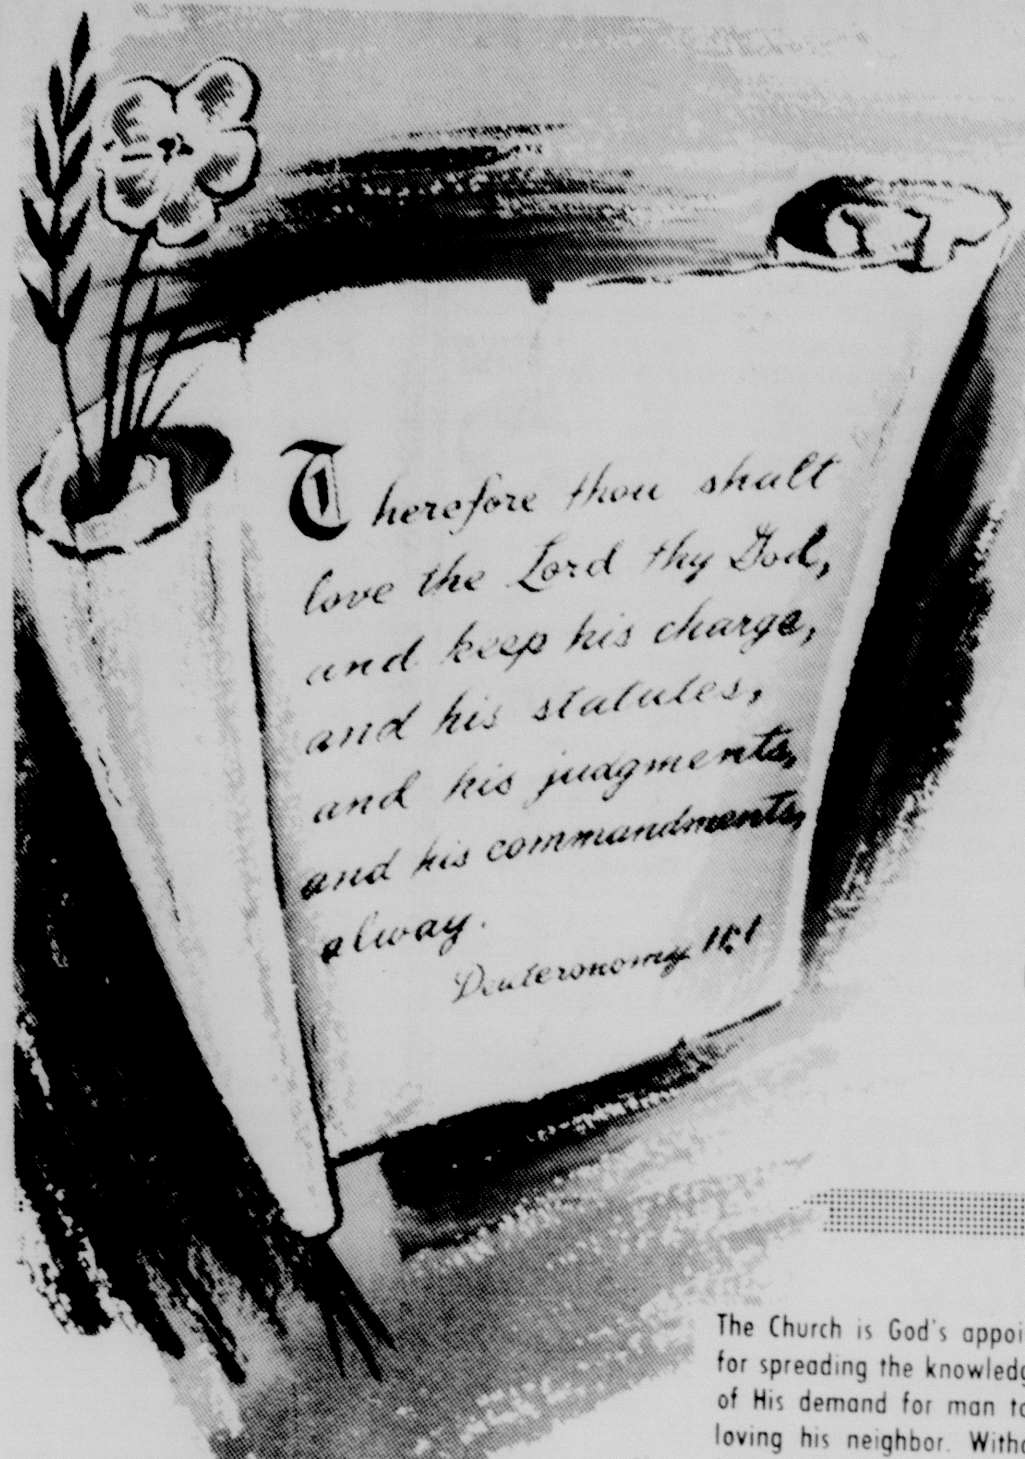 Therefore thou shalt
love the Lord thy God,
and keep his charge,
and his statutes,
and his judgments,
and his commandments,
alway.
Deuteronomy 11:1
The Church is God's appoi
for spreading the knowledg
of His demand for man to
loving his neighbor. Witho